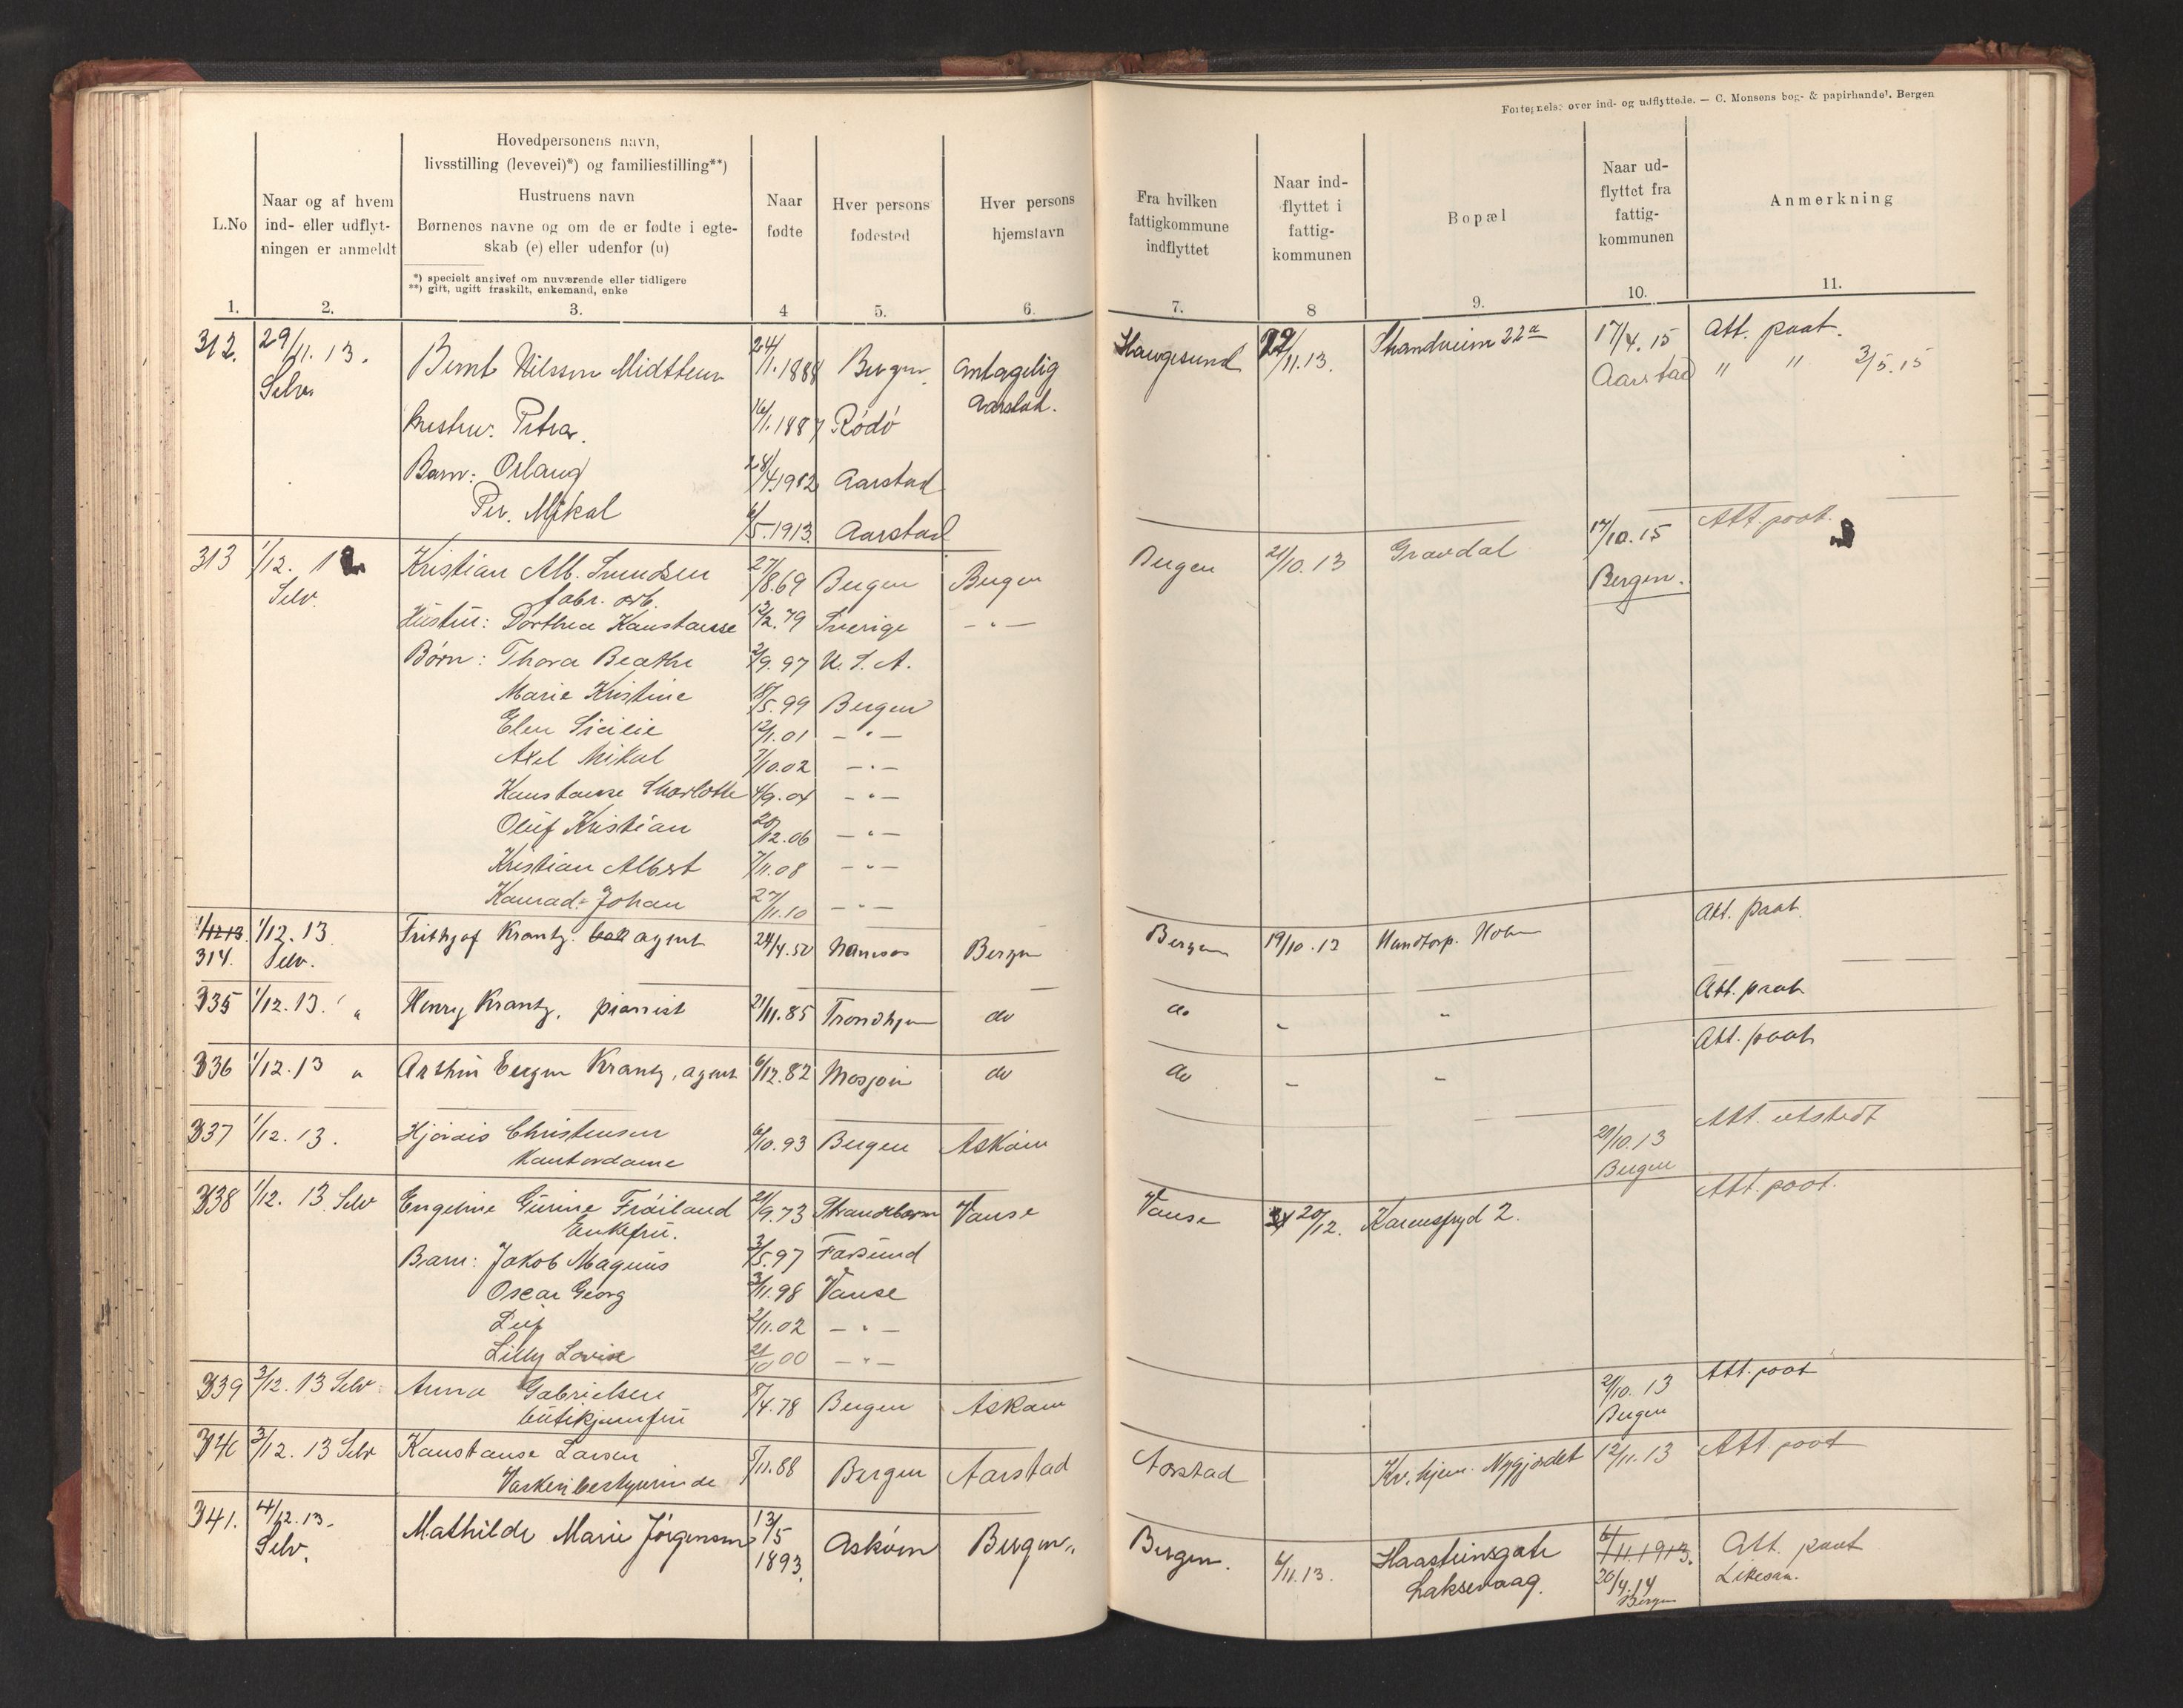 Fortegnelse over ind- og udflyttede. — C. Monsens bog- & papirhandel. Bergen
L.No
Naar og af hvem
ind- eller udflyt-
ningen er anmeldt
Hovedpersonens navn,
livsstilling (levevei)*) og familiestilling**)
Hustruens navn
Børnenes navne og om de er fødte i egte-
skab (e) eller udenfor (u)
*) specielt angivet om nuværende eller tidligere
**) gift, ugift fraskilt, enkemand, enke
Naar
fødte
Hver persons
fødested
Hver persons
hjemstavn
Fra hvilken
fattigkommune
indflyttet
Naar ind-
flyttet i
fattig-
kommunen
Bopæl
Naar ud-
flyttet fra
fattig-
kommunen
Anmerkning
1. 2. 3. 4 5. 6. 7. 8 9. 10. 11.
312. 29/11.13. Bernt Nilssen Midttun 24/11.1888 Bergen Antagelig Haugesund 22/11.13. Strandveien 22a 17/4.15 Att. paat.
Selv Aarstad. Aarstad " " 3/5.15
Hustru: Petra. 16/1.1887 Rödö
Barn: Oslaug 28/4.1912 Aarstad
Per. Mikal 6/5.1913. Aarstad
313 1/12. Kristian Alb. Svendsen 27/8.69 Bergen Bergen Bergen 21/10.13 Gravdal 17/10.15 Att. paat.
Selv. fabr. arb. Bergen.
Hustru: Dorthea Konstanse 12/2.79 Sverige — " —
Börn: Thora Beathe 2/9.97 U. S. A.
Marie Kristine 18/5.99 Bergen
Elen Sicilie 12/1.01 — " —
Axel Mikal 7/10.02 — " —
Konstanse Charlotte 4/9.04 — " —
Oluf Kristian 20/12.06 — " —
Kristian Albert 7/11.08 — " —
Konrad Johan 27/11.10 — " —
1/12 13. 1/12.13. Frithjof Krantz. agent 24/4.50 Namsos Bergen Bergen 19/10.13 Att. paat.
314. Selv.
335 1/12.13. " Henry Krantz, pianist 21/11.85 Trondhjem do do " " Att. paat.
336 1/12.13 " Arthur Eugen Krantz, agent 6/12.82 Mosjøen do do " " Att. paat.
337 1/12.13. Hjördis Christensen 6/10.93 Bergen Asköen 29/10.13 Att. utstedt
Kontordame Bergen
338 1/12.13 Selv Engeline Gurine Fröiland 21/9.73 Vanse Vanse 20/12. Karensfryd 2. Att. paat.
Enkefru.
Barn: Jakob Magnus 3/5.97 Farsund
Oscar Georg 3/11.98 Vanse
Leif 2/11.02 — " —
Lilly Lovise 21/10 00 — " —
339 3/12.13 Selv. Anna Gabrielsen 8/4.78 Bergen Asköen 2/10.13 Att. paat
butikjomfru Bergen
340 3/12.13 Selv Konstanse Larsen 5/11.88 Bergen Aarstad Aarstad Kv. hjem. Nygjordet 12/11.13 Att paat
Vaskeribestyrerinde
341. 4/12.13. Mathilde Marie Jörgensen 13/5 1893. Asköen Bergen. Bergen. 6/11.13. Haasteinsgate 6/11.1913. Att. paat
Selv. Laksevaag. 20/4.14 Likesaa.
Bergen